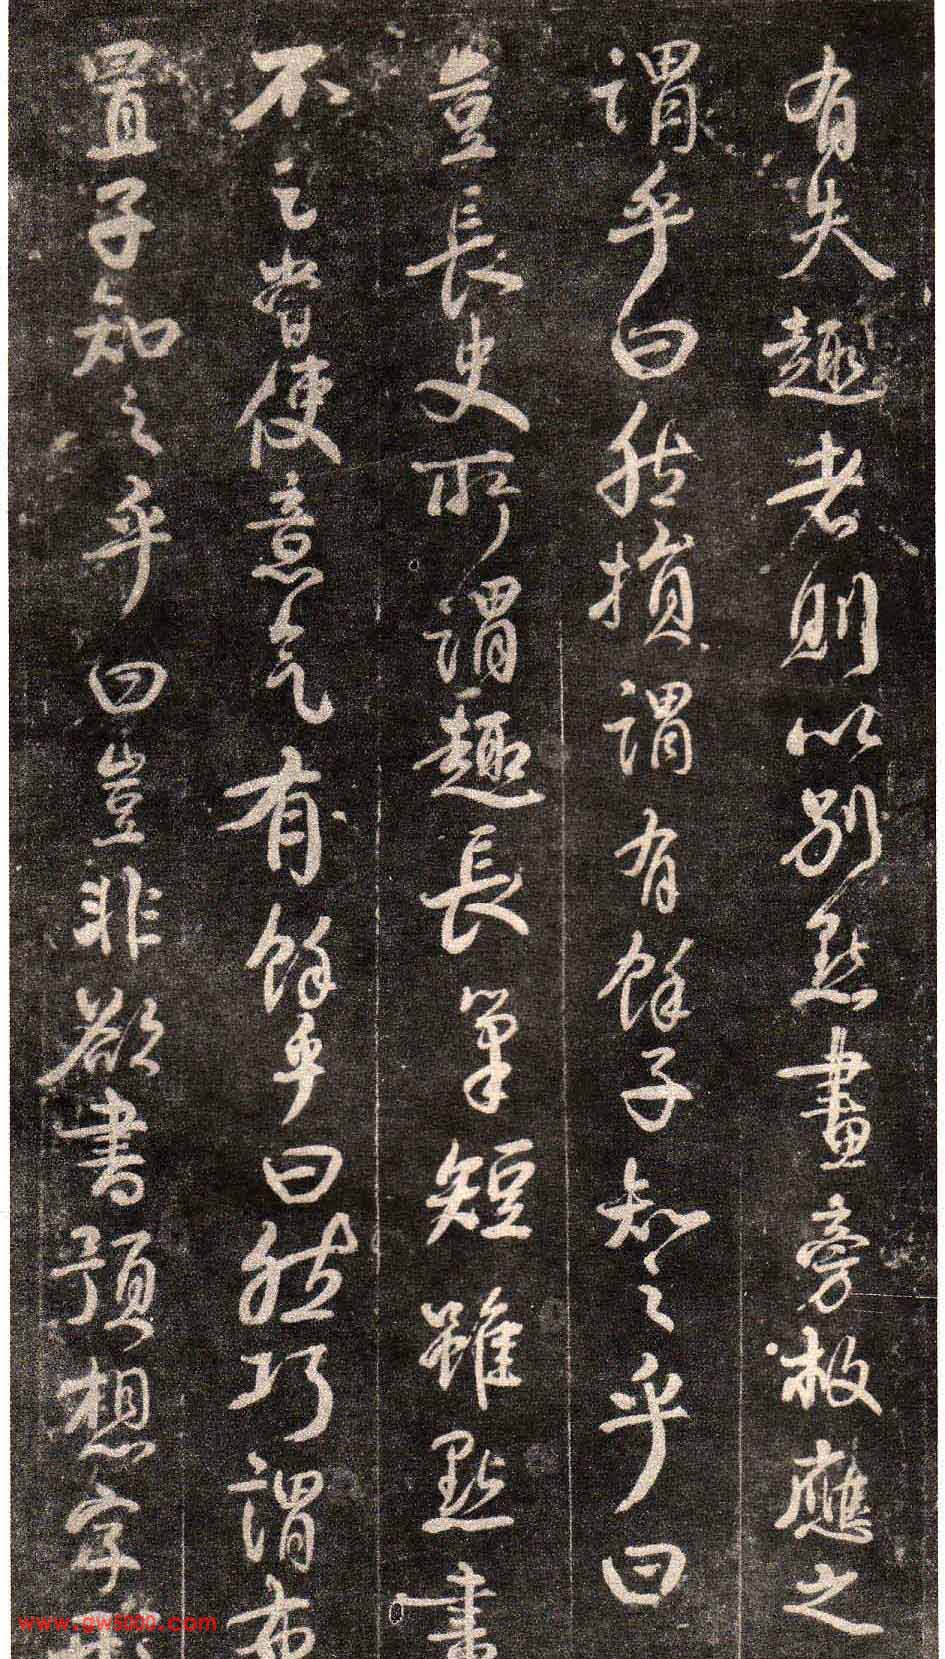 有失趣者則以別點畫旁救應之
謂乎曰然損謂有餘子知之乎曰
豈長史所謂趣長筆短雖點畫
不足嘗使意气有餘乎曰然巧謂布
置子知之乎曰豈非欲書預想字
www.gw5000.com